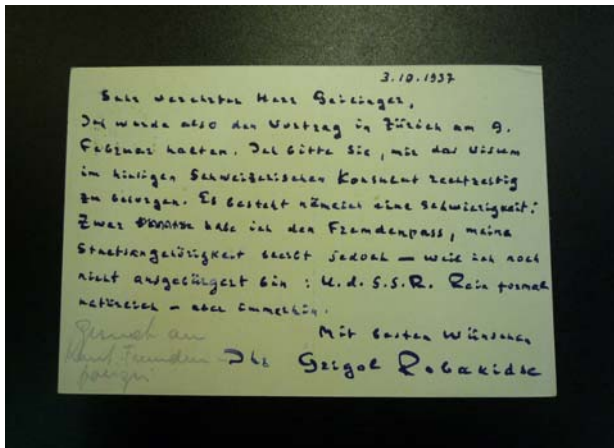 3.10.1937
Sehr verehrter Herr Geilinger,
Ich werde also den Vortrag in Zürich am 9.
Februar halten. Ich bitte Sie, mir das Visum
im hiesigen Schweizerischen Konsulat rechtzeitig
zu besorgen. Es besteht nämlich eine Schwierigkeit:
Zwar habe ich den Fremdenpass, meine
Staatsangehörigkeit bleibt jedoch — weil ich noch
nicht ausgebürgert bin : U.d.S.S.R. Rein formal
natürlich — aber immerhin.
Mit besten Wünschen
Ihr Grigol Robakidse
Gesuch an
Kant. Fremden-
polizei